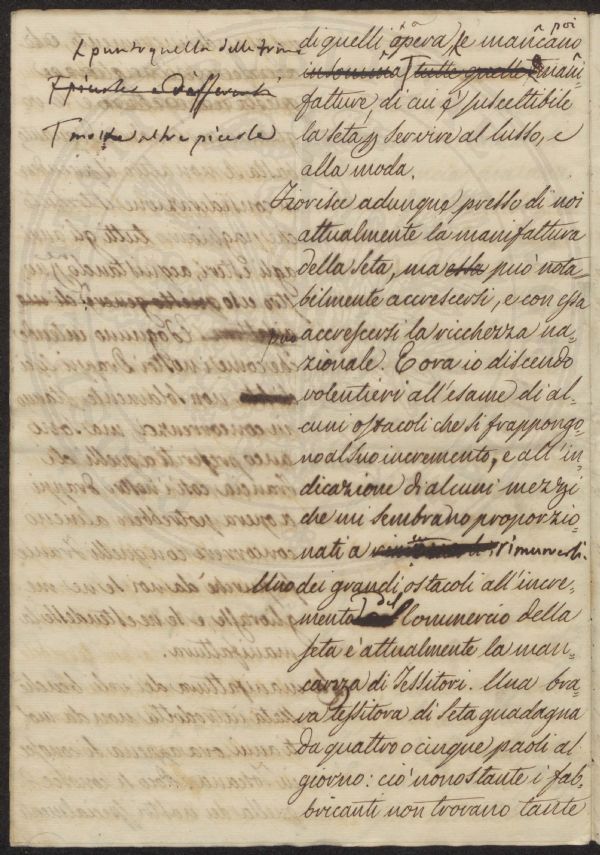 appunto quella delle trine
piccole e differenti
molte altre piccole
di quelli opera, e mancano poi
tutte quelle mani=
fatture, di cui è suscettibile
la seta p servire al lusso, e
alla moda.
Fiorisce adunque presso di noi
attualmente la manifattura
della seta, ma essa può nota
bilmente accrescersi, e con essa
può accrescersi la ricchezza na=
zionale. E ora io discendo
volentieri all'esame di al=
cuni ostacoli che si frappongo=
no al suo incremento, e all'in=
dicazione di alcuni mezzi
che mi sembrano proporzio=
nati a rimuoverli.
Uno dei grandi ostacoli all'incre=
mento del Commercio della
seta è attualmente la man=
canza di Tessitori. Una bra=
va tessitora di seta guadagna
da quattro o cinque paoli al
giorno: ciò nonostante i fab=
bricanti non trovano tante